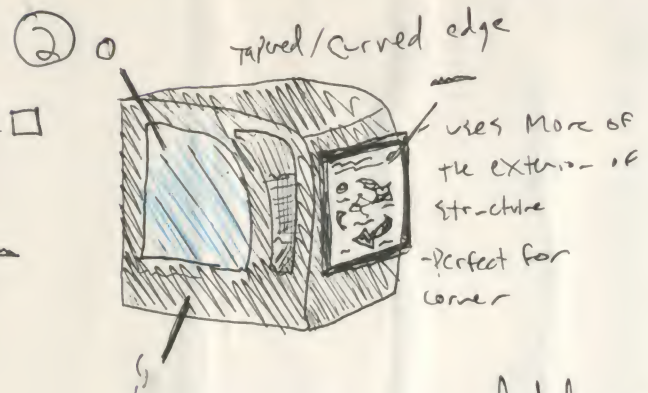 2
Tapered/curved edge
- uses More of
the exterior of
structure
-Perfect for
corner